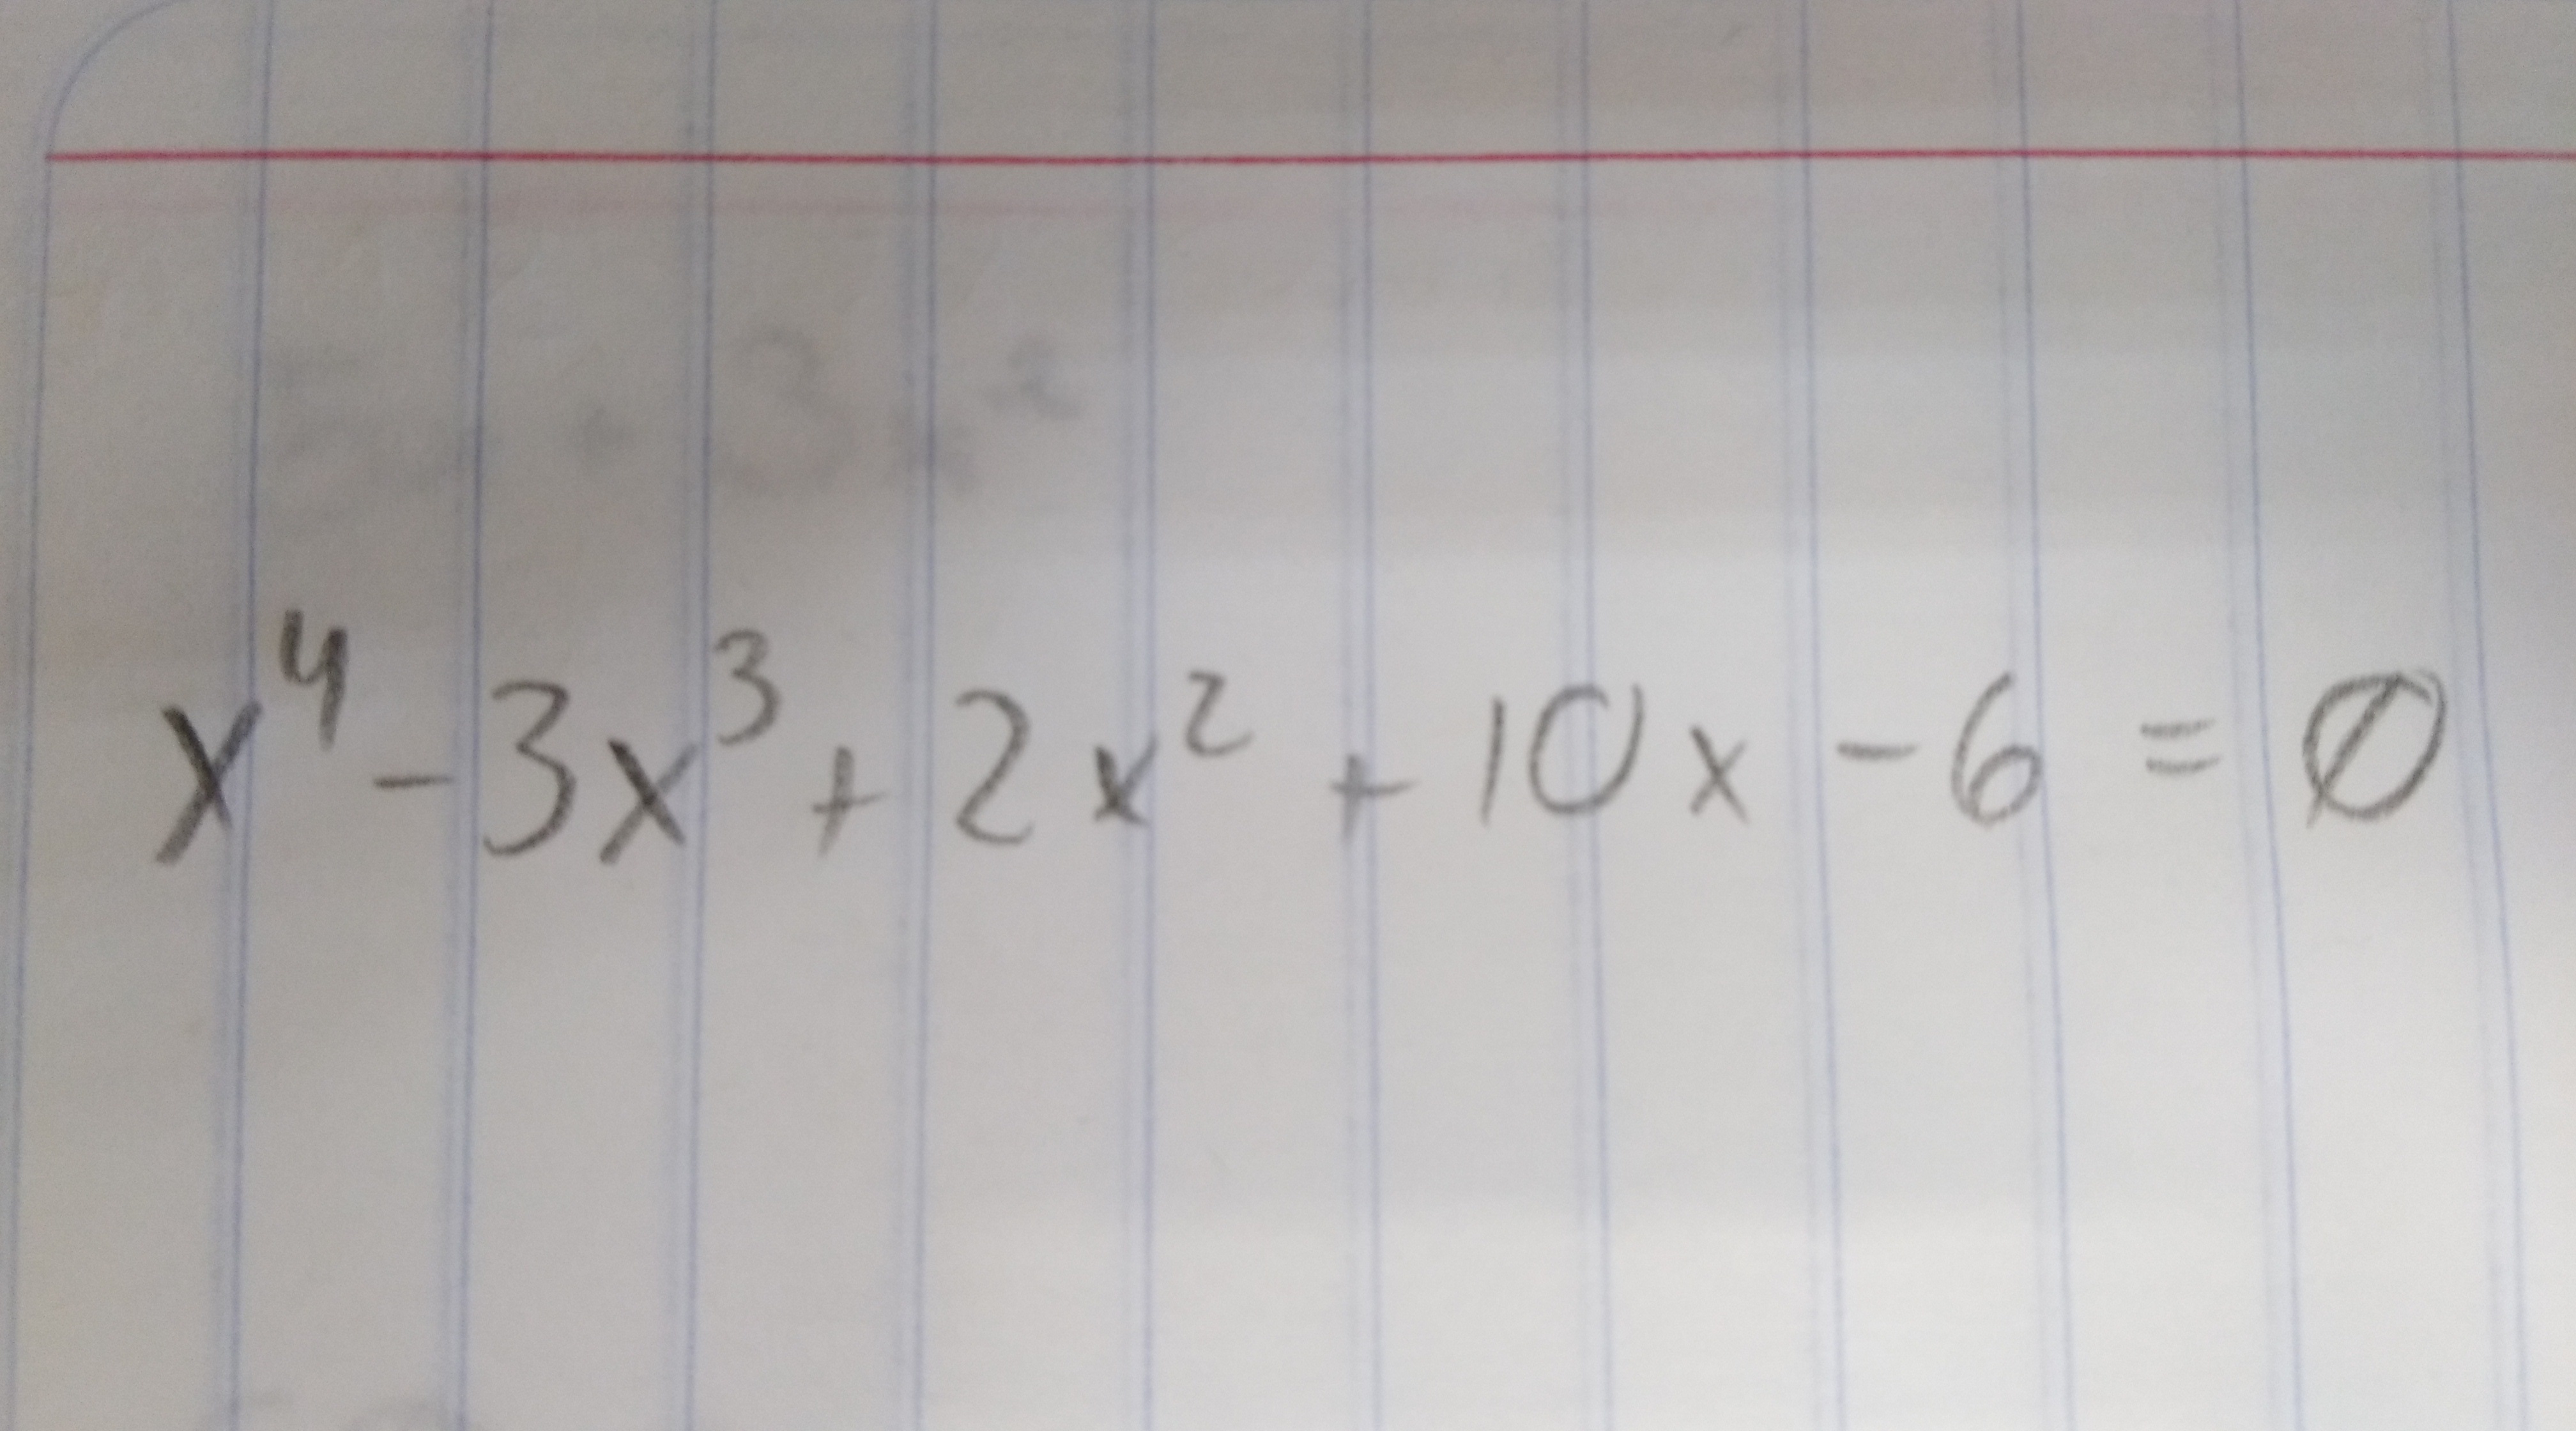 x⁴ - 3x³ + 2x² + 10x - 6 = 0